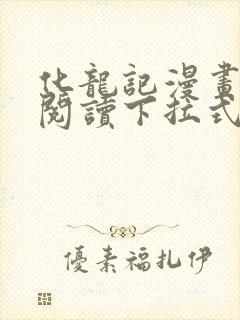 化龍記漫畫
閱讀下拉式
優素福扎伊